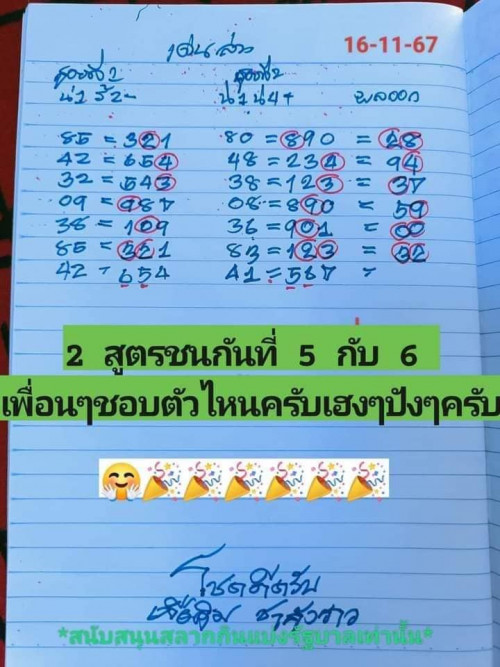 16-11-67
เด่น ล่าง
สูตรที่ 2 สูตรที่ 2
น่1 ร้2- น่1 น่4+ ผลออก
85 = 321 80 = 890 = 28
42 = 654 48 = 234 = 94
32 = 543 38 = 123 = 37
09 = 987 08 = 890 = 59
38 = 109 36 = 901 = 00
85 = 321 83 = 123 = 32
42 = 654 41 = 567 =
2 สูตรชนกันที่ 5 กับ 6
เพื่อนๆชอบตัวไหนครับเฮงๆปังๆครับ
🤗🎉🎉🎉🎉🎉🎉
โชคดีครับ
*สนับสนุนสลากกินแบ่งรัฐบาลเท่านั้น*